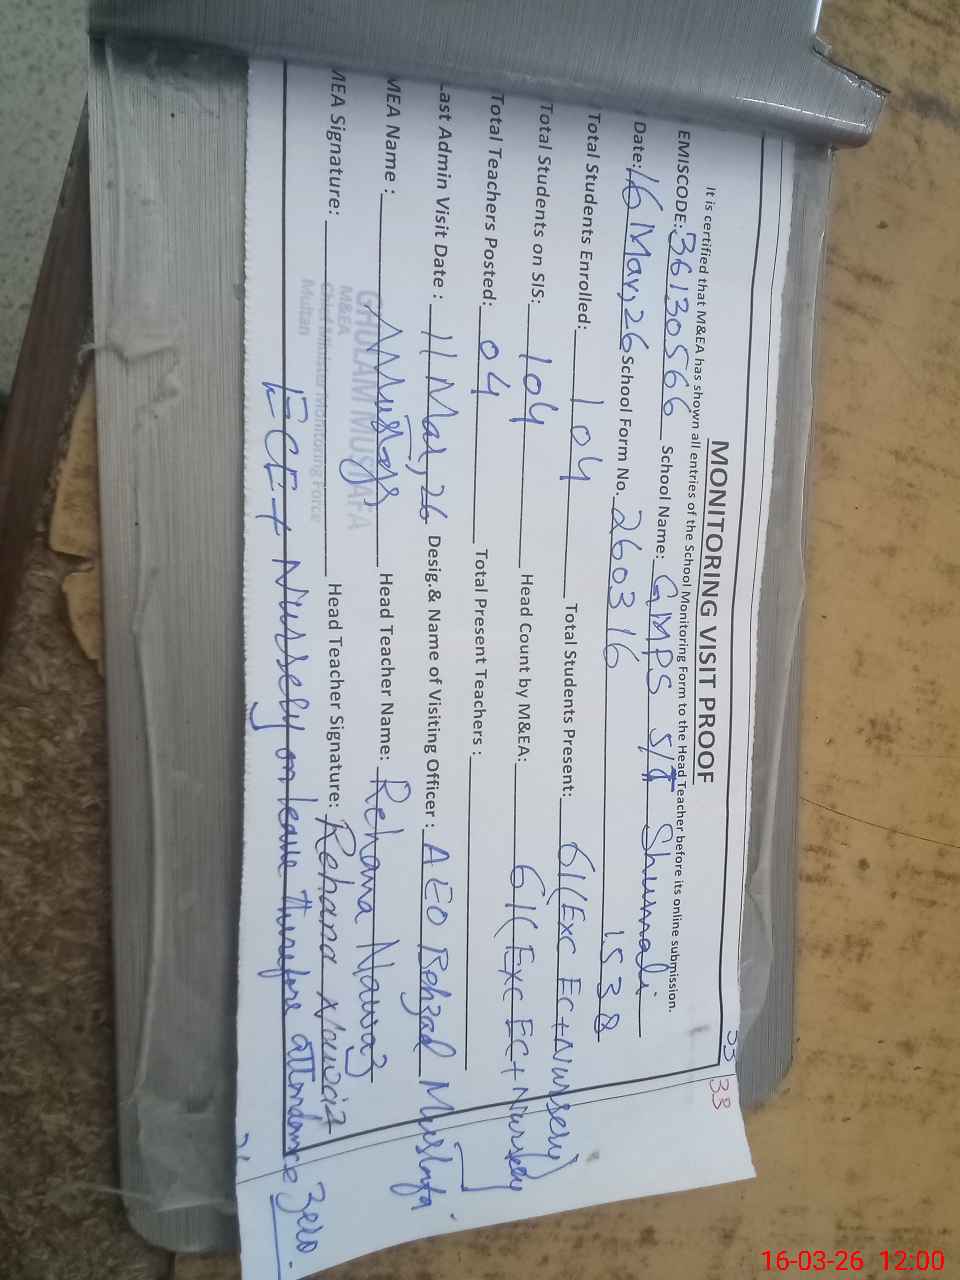 33
33
MONITORING VISIT PROOF
It is certified that M&EA has shown all entries of the School Monitoring Form to the Head Teacher before its online submission.
EMISCODE: 36130566 School Name: GMPS S/T Shumali
Date: 16 Mar, 26 School Form No. 260316 1538
Total Students Enrolled: 104 Total Students Present: 61 (Exc EC+Nursery)
Total Students on SIS: 104 Head Count by M&EA: 61 (Exc EC+Nursery
Total Teachers Posted: 04 Total Present Teachers :
Last Admin Visit Date : 11 Mar, 26 Desig.& Name of Visiting Officer : AEO Behzad Mustafa
MEA Name : Head Teacher Name: Rehana Nawaz
MEA Signature: Head Teacher Signature: Rehana Nawaz
GHULAM MUSTAFA
M&EA
Chief Minister Monitoring Force
Multan
ECE + Nursely on leave therefore attendance zero.
16-03-26 12:00